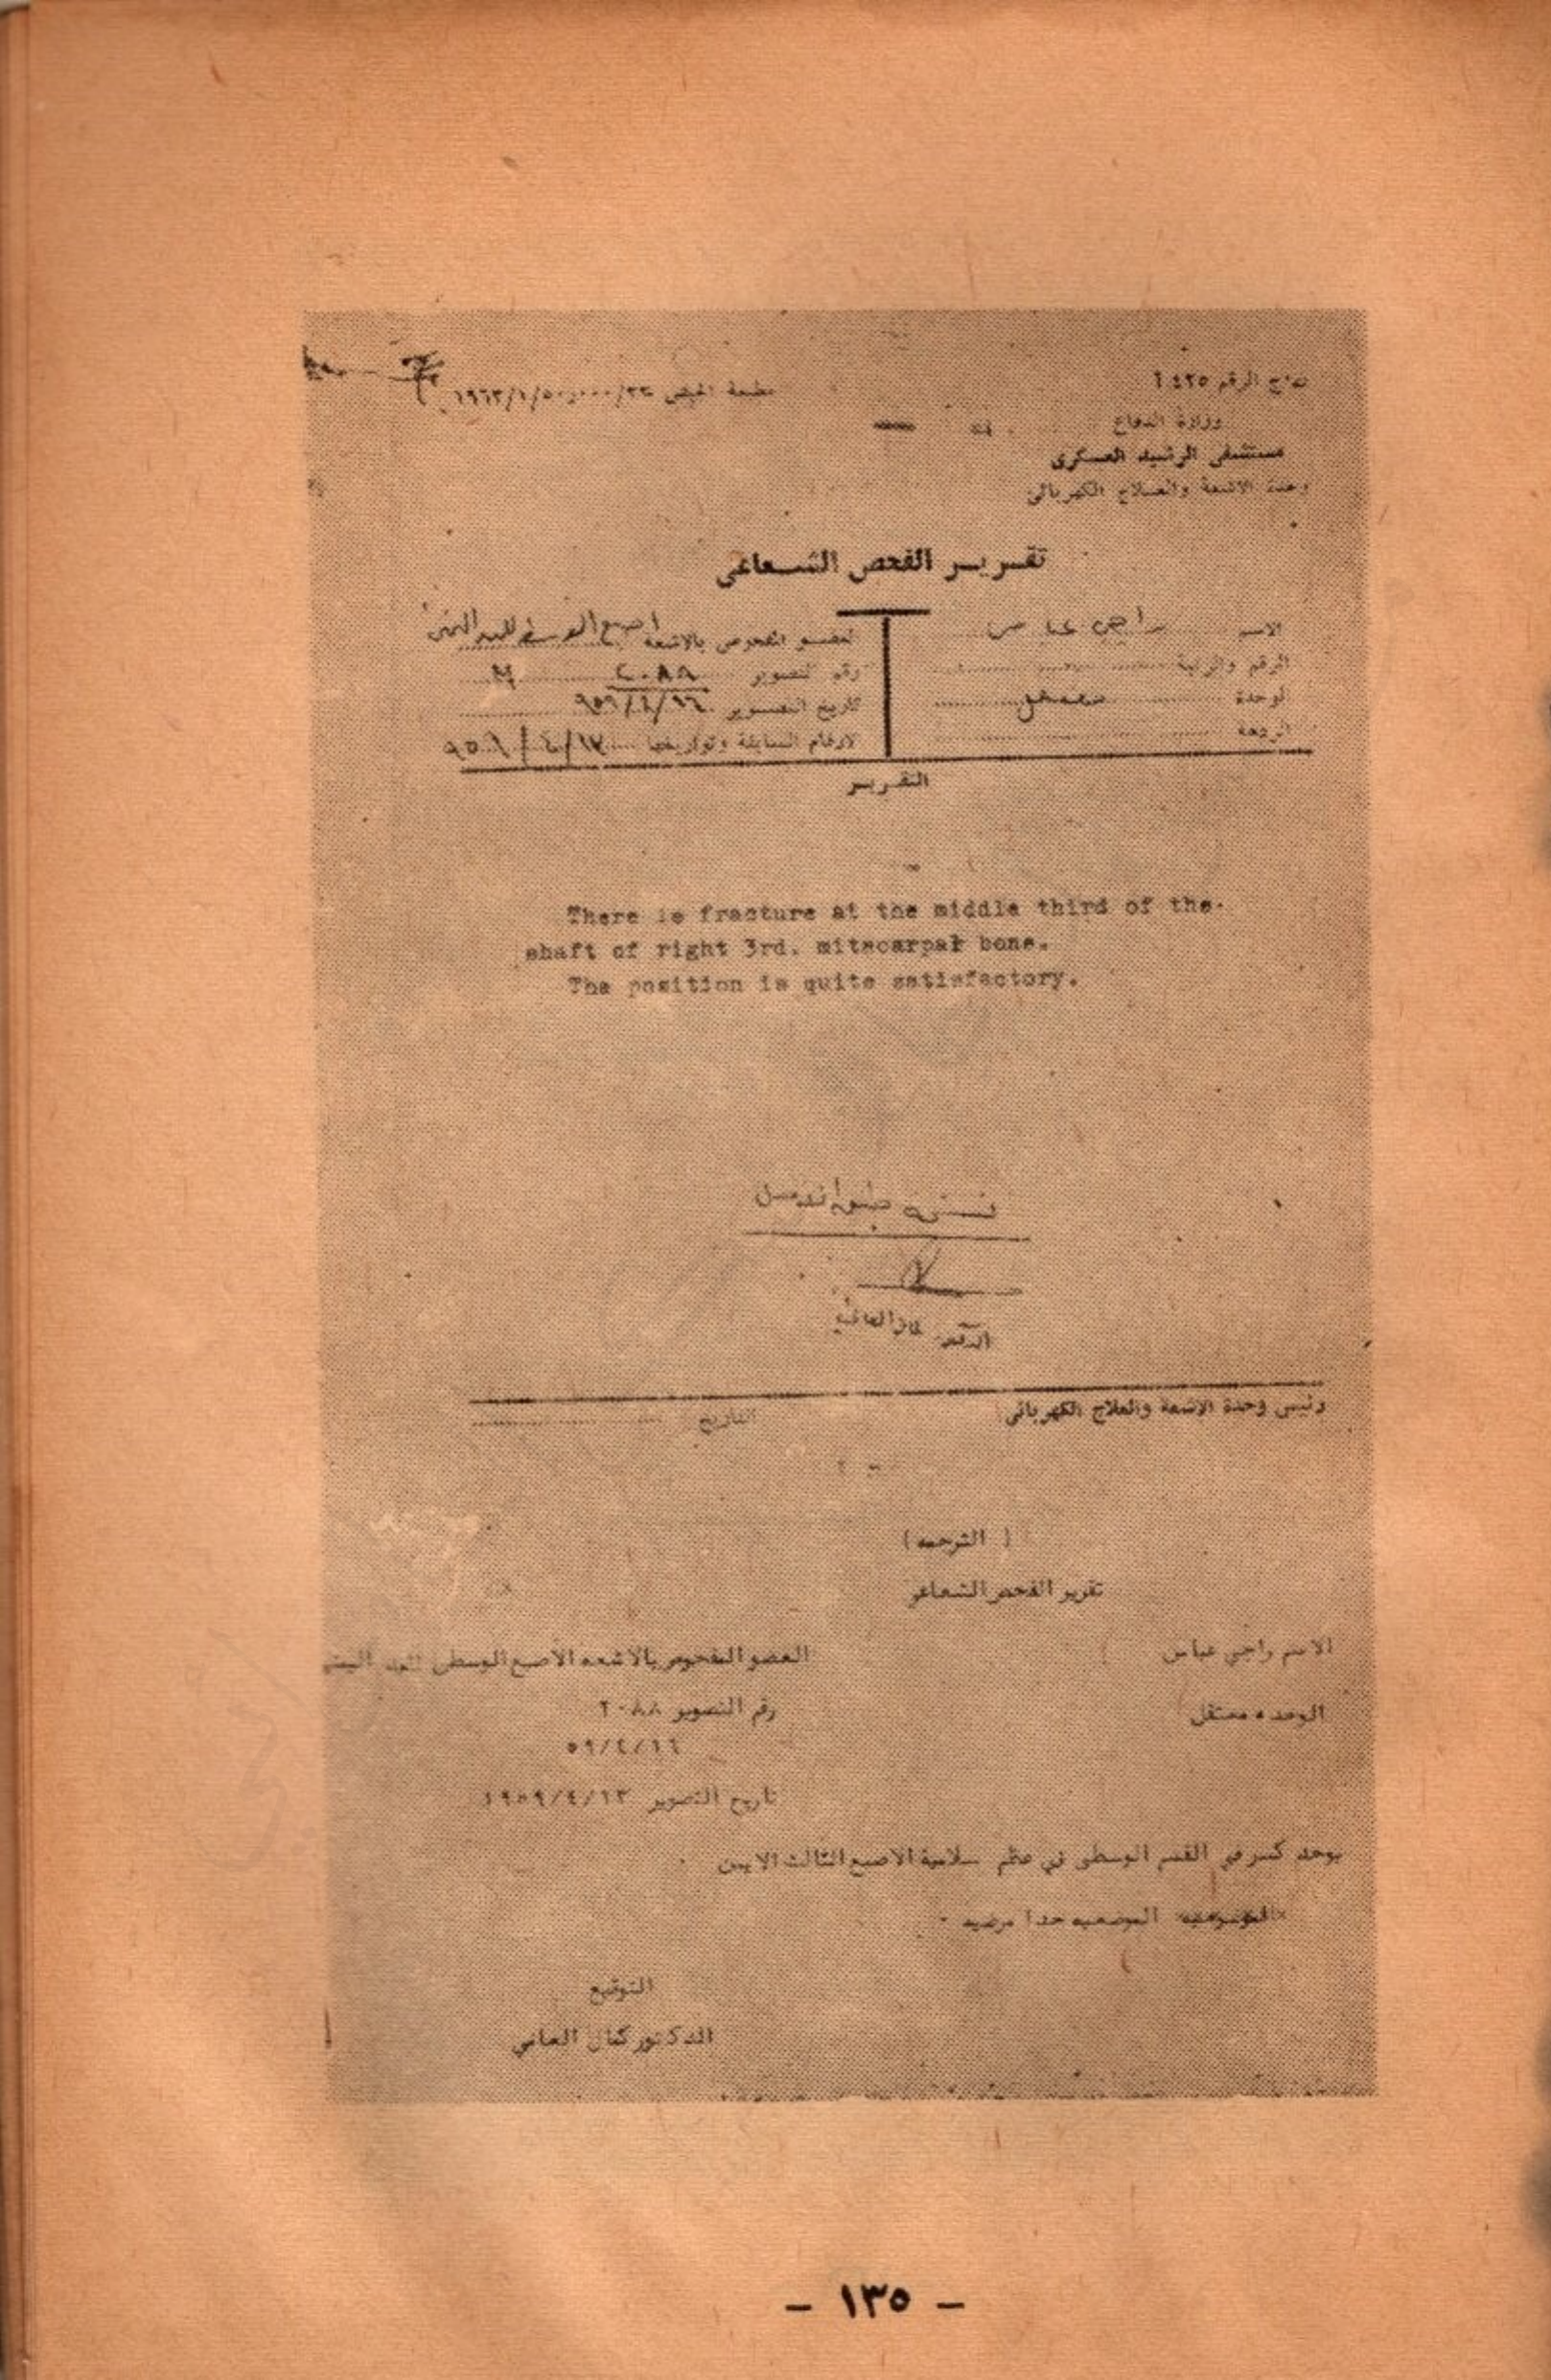 الرقم ٤٢٥
مطبعة الجيش
وزارة الدفاع
مستشفى الرشيد العسكرى
وحدة الاشعة والعلاج الكهربائى
تقرير الفحص الشعاعى
الاسم راجي عباس
العضو المفحوص بالاشعة اصبع الوسطى لليد اليمنى
الرقم والرتبة
رقم التصوير ٢٠٨٨
الوحدة معتقل
تاريخ التصوير ٩٥٩/٤/١٦
الارقام السابقة وتواريخها
التقرير
There is fracture at the middle third of the
shaft of right 3rd. mitacarpal bone.
The position is quite satisfactory.
نسخة طبق الاصل
رئيس وحدة الاشعة والعلاج الكهربائى
التاريخ
( الترجمه )
تقرير الفحص الشعاعي
الاسم راجي عباس
العضو المفحوص بالاشعه الاصبع الوسطى لليد اليمنى
الوحده معتقل
رقم التصوير ٢٠٨٨
٥٩/٤/١٦
تاريخ التصوير ١٩٥٩/٤/١٣
يوجد كسر في القسم الوسطى في عظم سلامية الاصبع الثالث الايمن
الوضعيه جدا مرضيه ٠
التوقيع
الدكتور كمال العاني
- ١٣٥ -